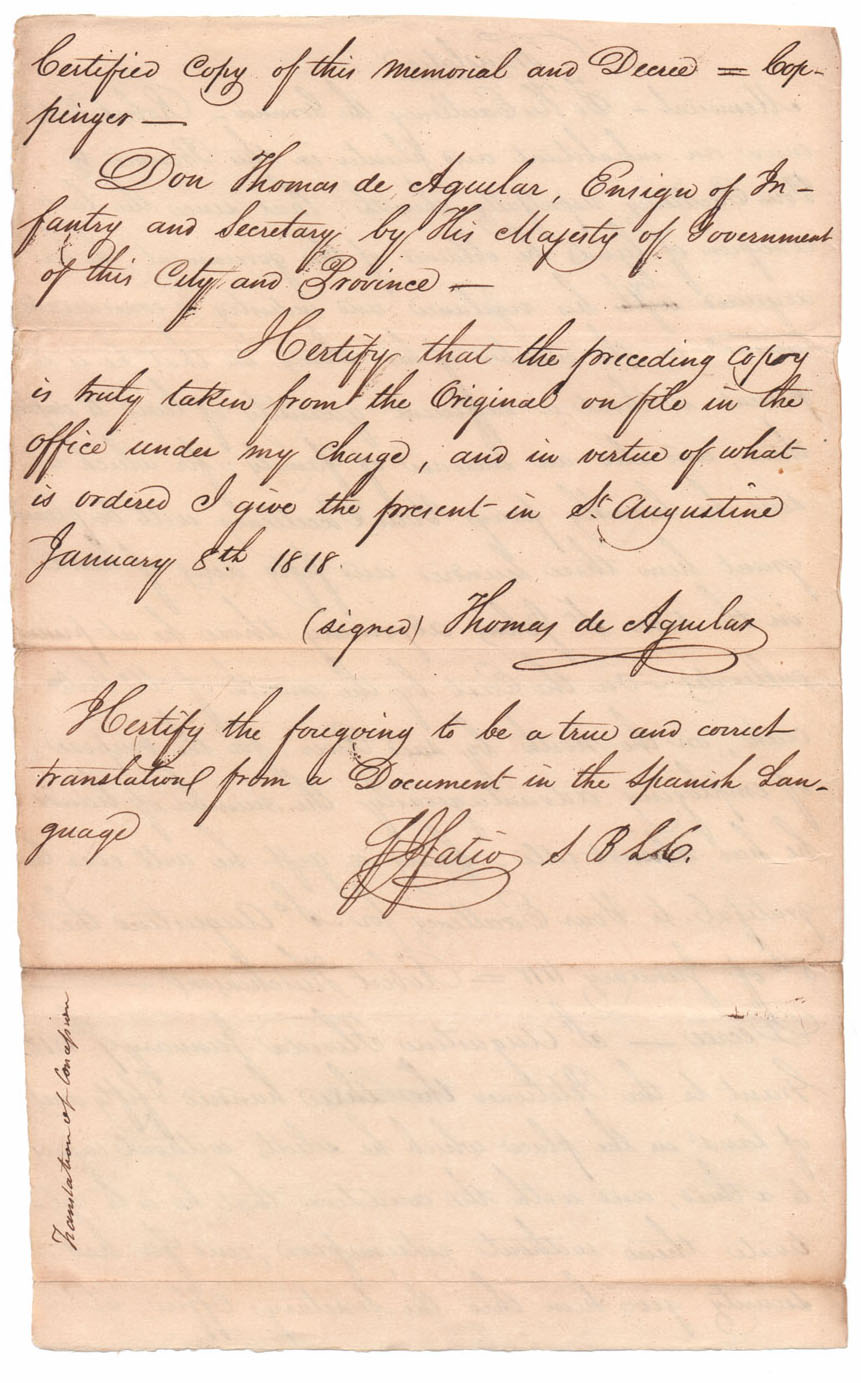 Certified Copy of this Memorial and Decree = Cop-
pinger —
Don Thomas de Aguilar, Ensign of In-
fantry and Secretary by His Majesty of Government
of this City and Province —
I Certify that the preceding Copy
is truly taken from the Original on file in the
office under my Charge, and in virtue of what
is ordered I give the present in St. Augustine
January 8th. 1818.
(signed) Thomas de Aguilar
I Certify the foregoing to be a true and correct
translation from a Document in the Spanish Lan-
guage
F J Fatio S B L C.
Translation of Concession